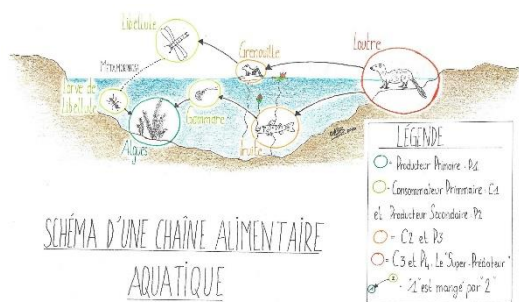 Libellule
Métamorphose
Grenouille
Loutre
Larve de
Libellule
Gammare
Algues
Truite
LÉGENDE
= Producteur Primaire - P1
= Consommateur Primmaire - C1
et Producteur Secondaire - P2
= C2 et P3
= C3 et P4 - Le "Super-Prédateur"
2
1
= "1" est mangé par "2"
SCHÉMA D'UNE CHAÎNE ALIMENTAIRE
AQUATIQUE